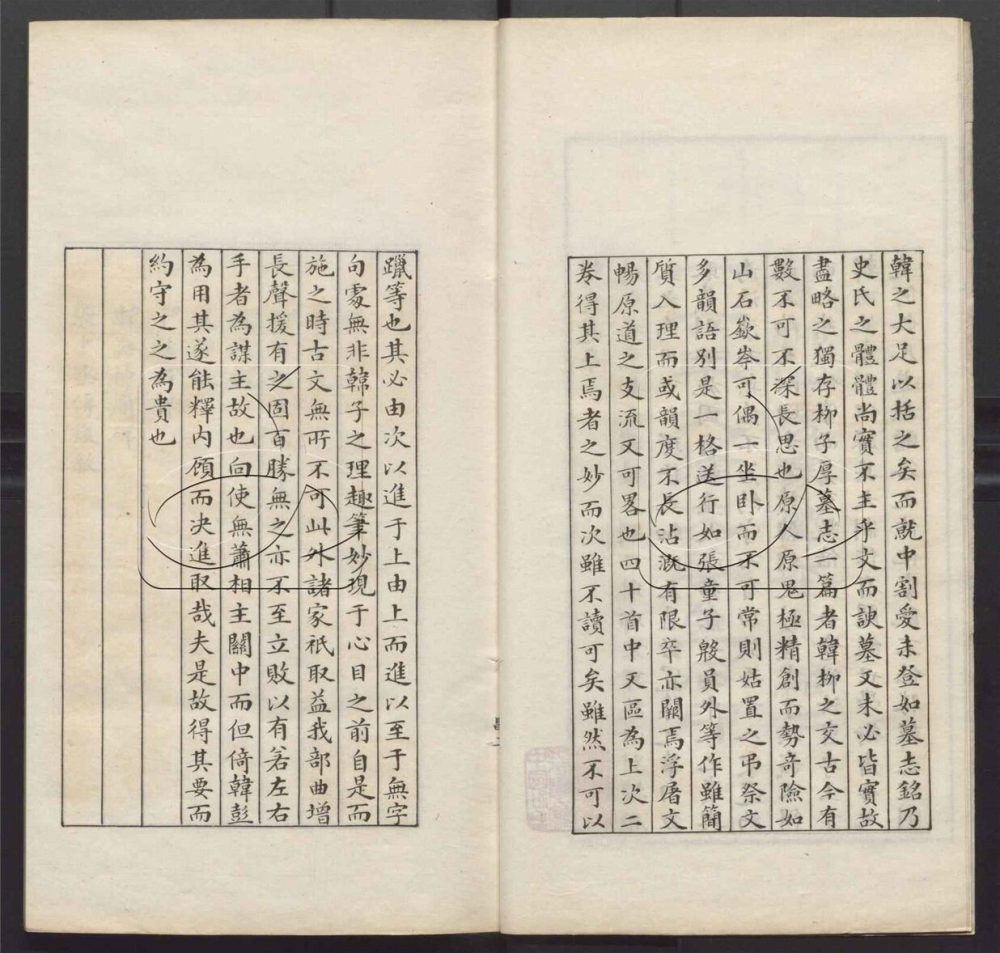 韓之大足以括之矣而就中割愛未登如墓志銘乃
史氏之體體尚實不主乎文而諛墓又未必皆實故
盡略之獨存柳子厚墓志一篇者韓柳之交古今有
數不可不深長思也原人原鬼極精創而勢奇險如
山石嶔岑可偶一坐臥而不可常則姑置之弔祭文
多韻語別是一格送行如張童子殷員外等作雖簡
質入理而或韻度不長沾溉有限卒亦闕焉浮屠文
暢原道之支流又可畧也四十首中又區為上次二
券得其上焉者之妙而次雖不讀可矣雖然不可以
躐等也其必由次以進于上由上而進以至于無字
句處無非韓子之理趣筆妙現于心目之前自是而
施之時古文無所不可此外諸家祇取益我部曲增
長聲援有之固百勝無之亦不至立敗以有若左右
手者為謀主故也向使無蕭相主關中而但倚韓彭
為用其遂能釋內顧而決進取哉夫是故得其要而
約守之之為貴也